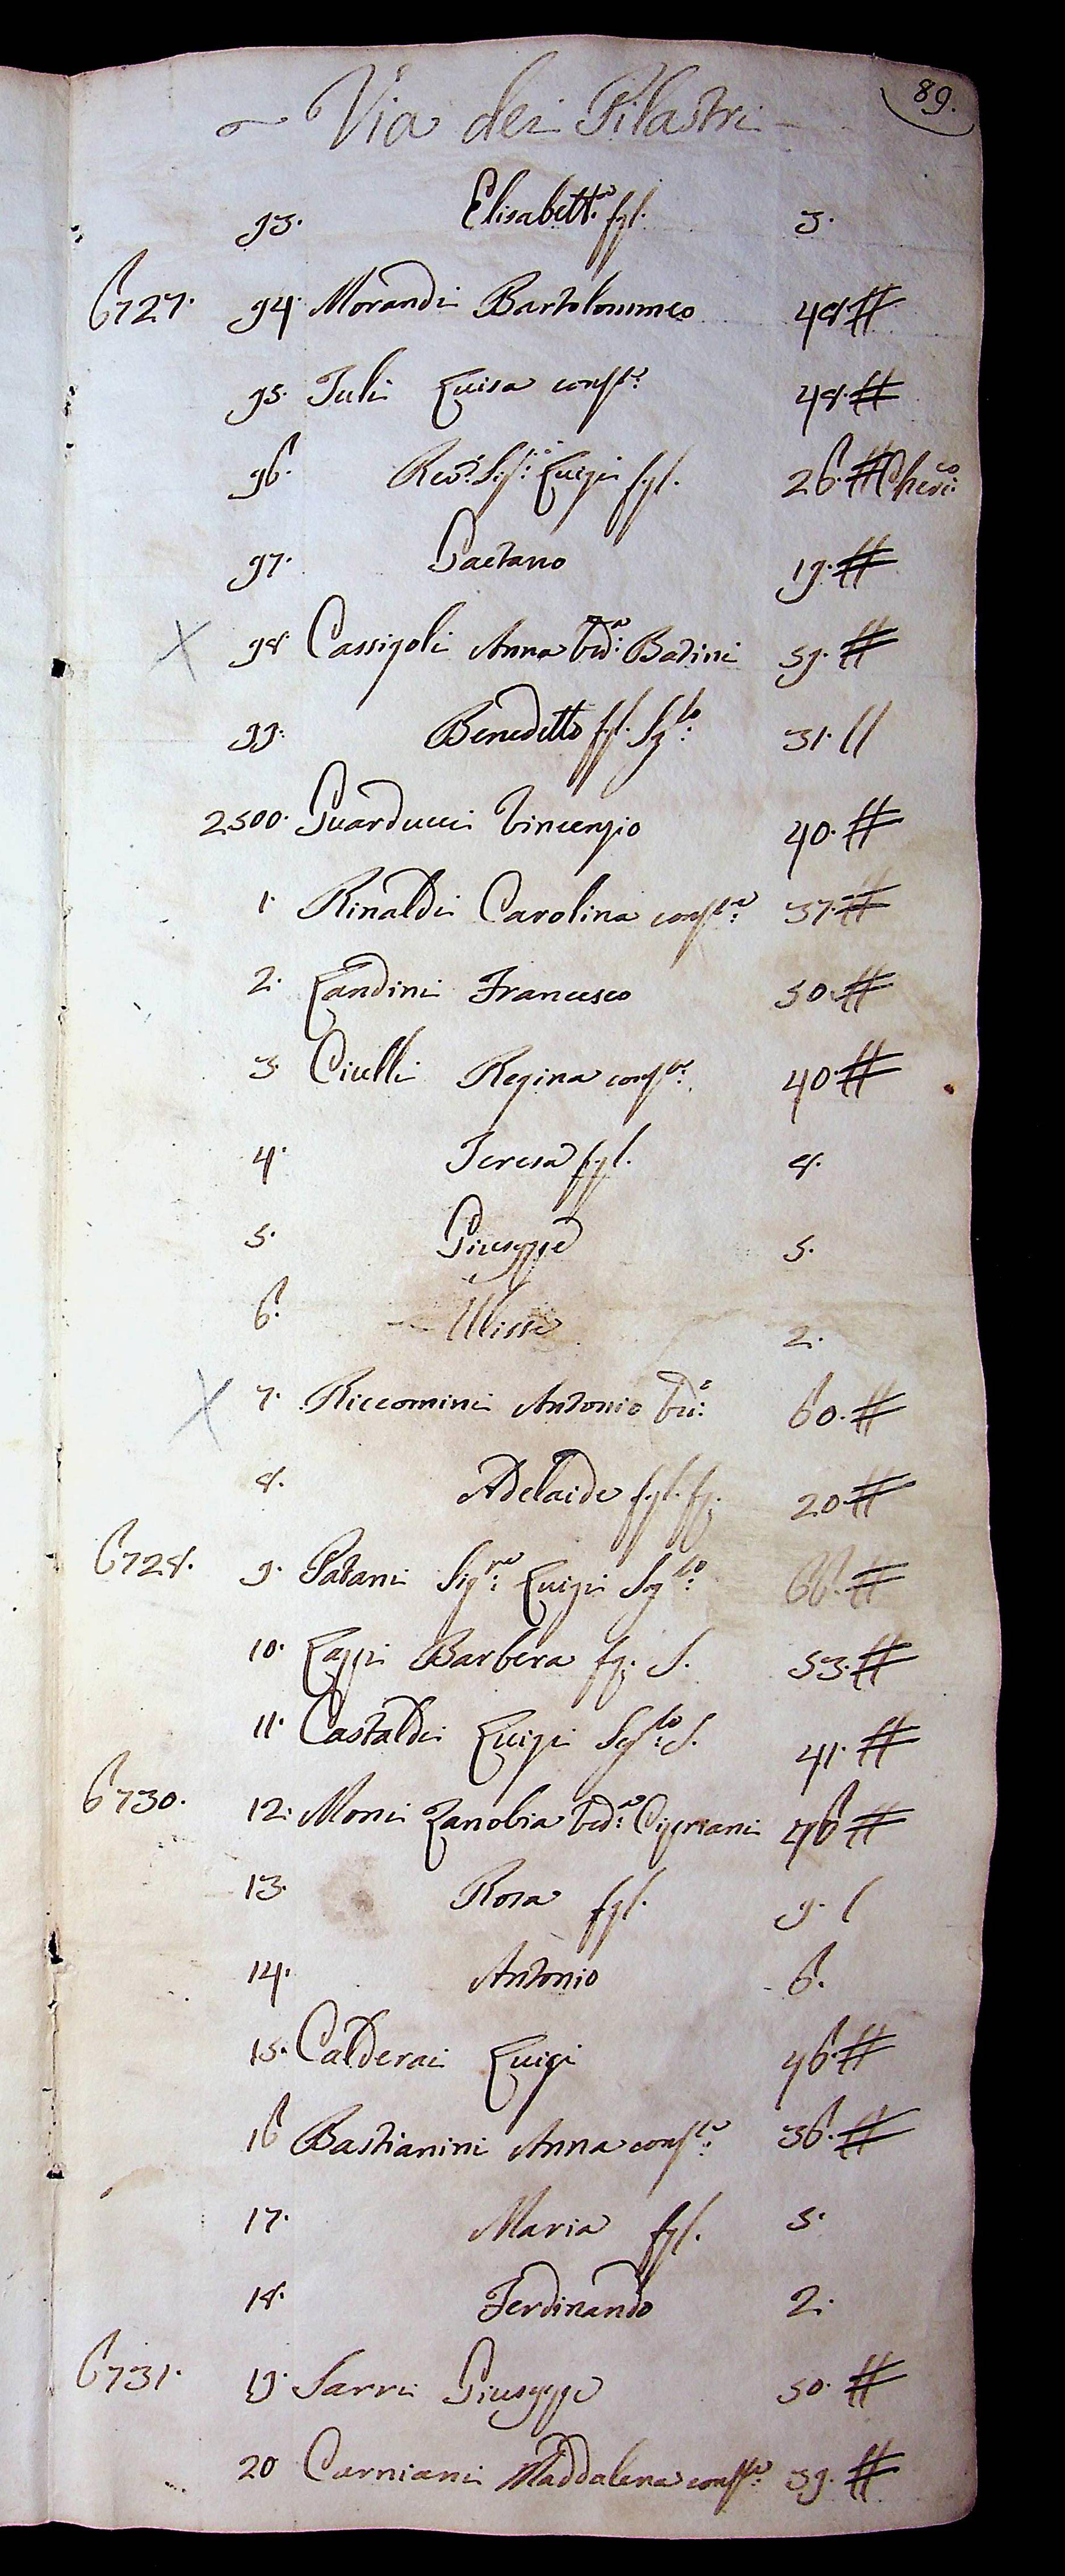 89.
Via dei Pilastri
93. Elisabett.ª fgl. 3.
6727. 94. Morandi Bartolommeo 48. #
95. Juli Luisa consᵗᵉ: 48. #
96. Rev: Sigʳ: Luigi fgl. 26. # Cheriᶜᵒ:
97. Gaetano 19. #
X 98. Cassigoli Anna Vdª: Badini 59. #
99. Benedetto fgl. Sgˡᵒ: 31. //
2500. Guarducci Vincenzio 40. #
1. Rinaldi Carolina consᵗᵉ: 37. #
2. Landini Francesco 50. #
3. Ciulli Regina consᵗᵉ: 40. #
4. Teresa fgl. 8.
5. Giuseppe 5.
6. Ulisse 2.
X 7. Riccomini Antonio Vd: 60. #
8. Adelaide fgl. fª. 20. #
6728. 9. Patani Sigʳᵉ: Luigi Sgˡᵒ: 66. #
10. Lappi Barbera fª. S. 53. #
11. Castaldi Luigi Sgˡᵒ: S. 41. #
6730. 12. Moni Zanobia Vdª: Cipriani 46 #
13. Rosa fgl. 9. /
14. Antonio 6.
15. Calderai Luigi 46. #
16 Bastianini Anna consᵗᵉ: 36. #
17. Maria fgl. 5.
18. Ferdinando 2.
6731. 19. Sarri Giuseppe 50. #
20 Carniani Maddalena consᵗᵉ: 39. #